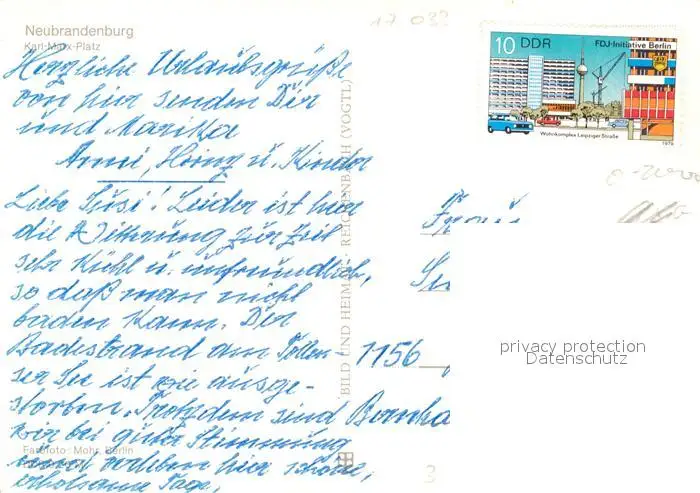 Neubrandenburg
Karl-Marx-Platz
17 032
Herzliche Urlaubsgrüße
von hier senden Dir
und Marika
Anni, Heinz u. Kinder
Liebe Susi! Leider ist hier
die Witterung zur Zeit
sehr kühl u. unfreundlich,
so daß man nicht
baden kann. Der
Badestrand am Tollen-
ser See ist wie ausge-
storben. Trotzdem sind
wir bei guter Stimmung
und verleben hier schöne,
erholsame Tage,
Farbfoto: Mohr, Berlin
BILD UND HEIMAT REICHENBACH (VOGTL)
10 DDR FDJ-Initiative Berlin
Wohnkomplex Leipziger Straße
1979
Frau
1156
privacy protection
Datenschutz
3